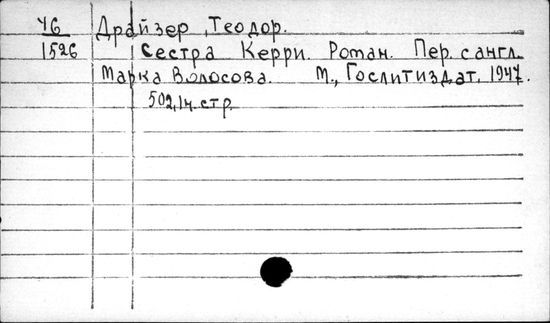 Ч6 Драйзер, Теодор.
1526 Сестра Керри. Роман. Пер. с англ.
Марка Волосова. М., Гослитиздат, 1947.
502, 1ч. стр.